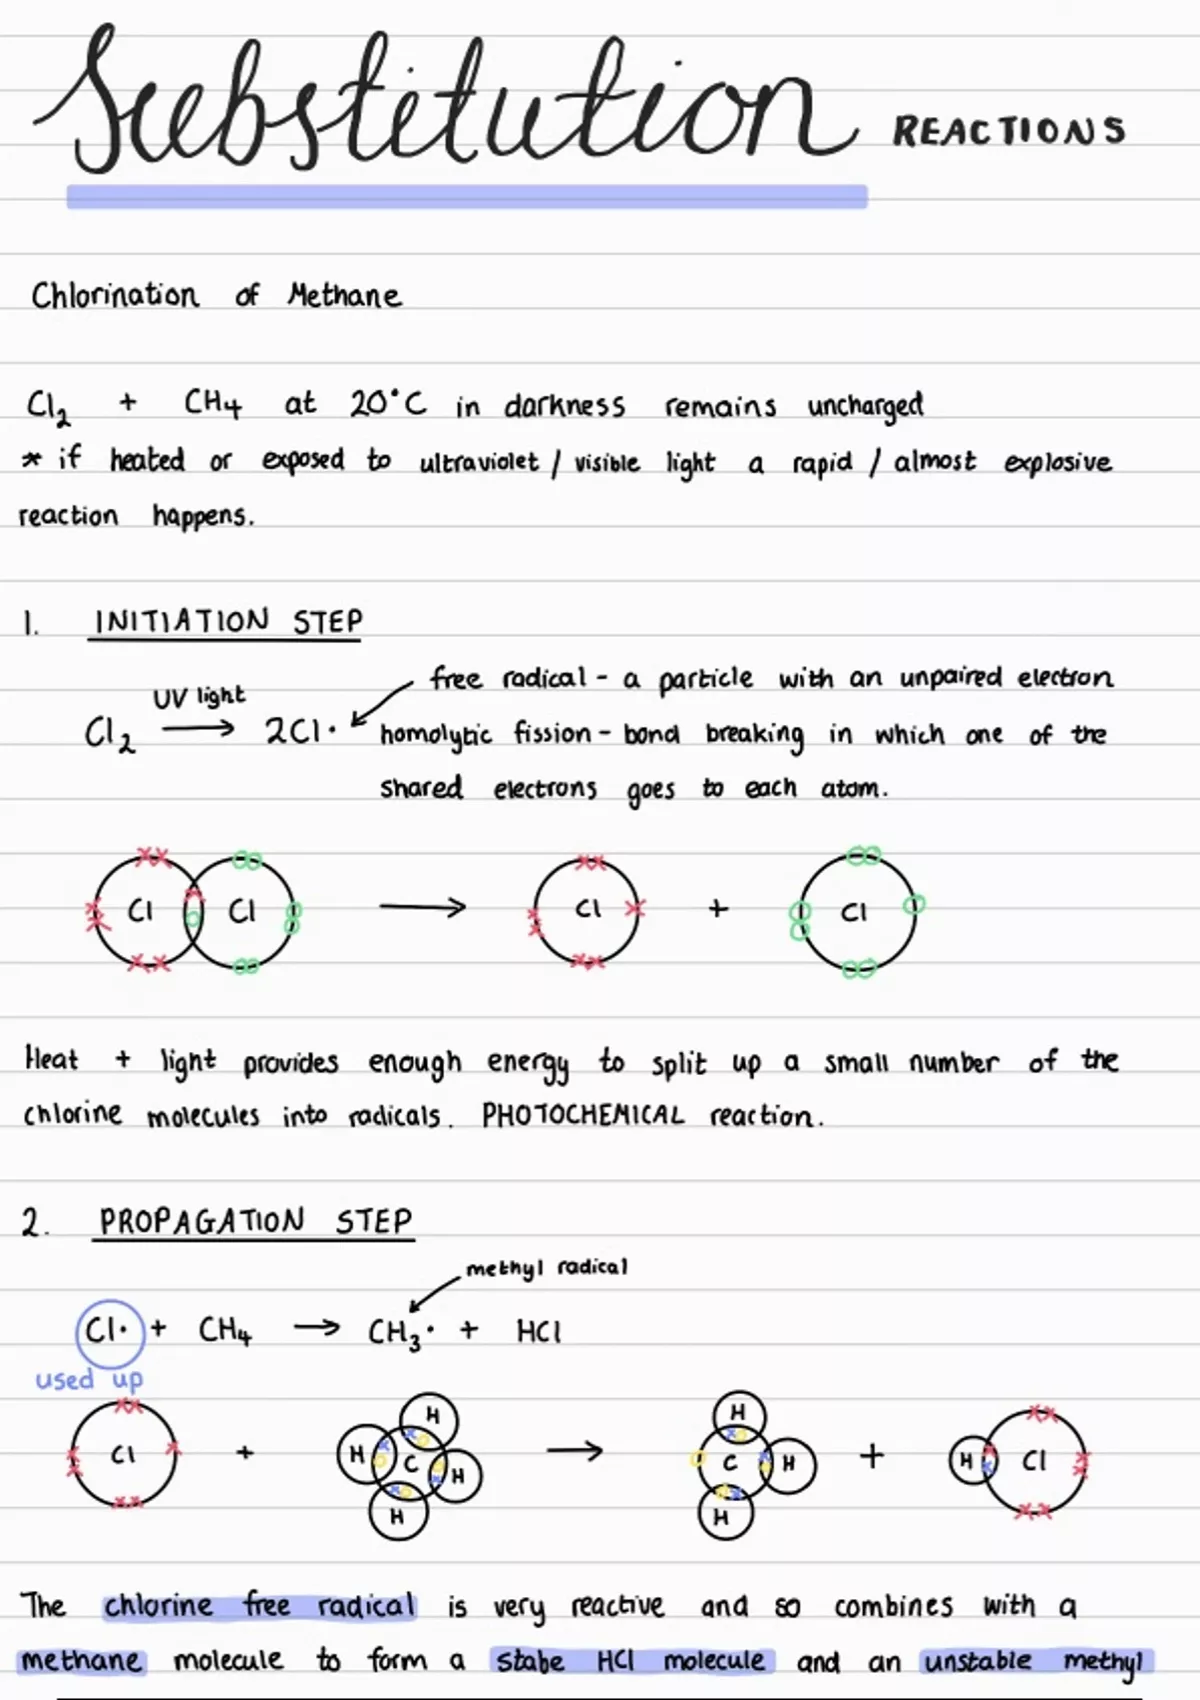 Substitution REACTIONS
Chlorination of Methane
Cl₂ + CH₄ at 20°C in darkness remains uncharged
* if heated or exposed to ultraviolet / visible light a rapid / almost explosive
reaction happens.
1. INITIATION STEP
free radical - a particle with an unpaired electron
UV light
Cl₂ → 2Cl• homolytic fission - bond breaking in which one of the
shared electrons goes to each atom.
Cl Cl → Cl + Cl
Heat + light provides enough energy to split up a small number of the
chlorine molecules into radicals. PHOTOCHEMICAL reaction.
2. PROPAGATION STEP
methyl radical
Cl• + CH₄ → CH₃• + HCl
used up
Cl + H H C H H → H C H H + H Cl
The chlorine free radical is very reactive and so combines with a
methane molecule to form a stabe HCl molecule and an unstable methyl